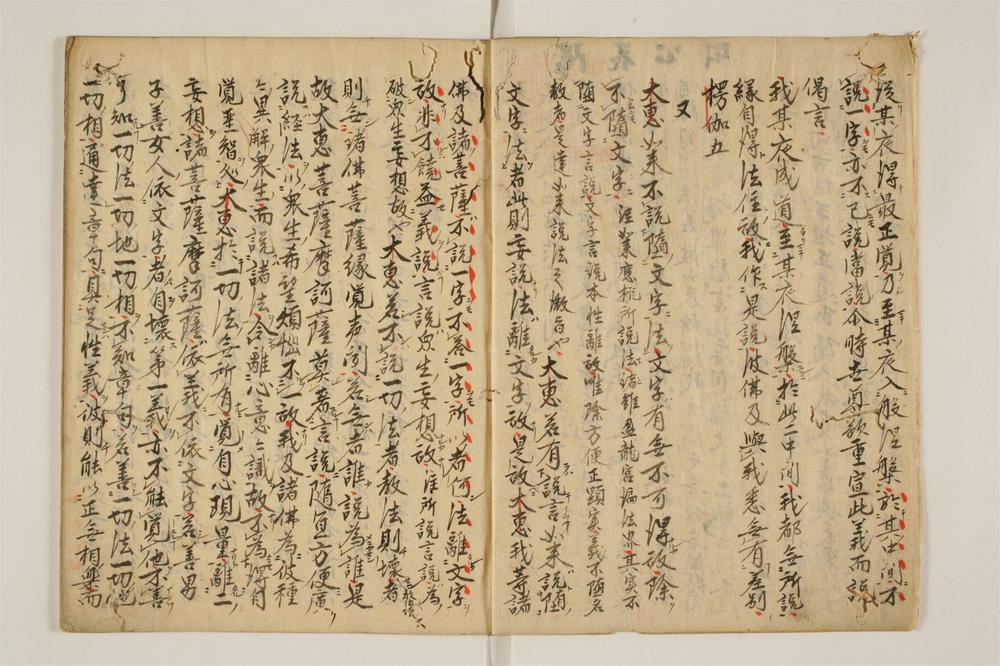 從某夜得最正覺乃至某夜入般涅槃於其中間不
說一字亦不已說當說尒時世尊欲重宣此義而說
偈言
我某夜成道至某夜涅槃於此二中間我都無所說
緣自得法住故我作是說彼佛及與我悉無有差別
楞伽五
又
大惠如來不說墮文字法文字有無不可得故除
不墮文字 注 如來應機所說法 雖盈龍宮滿法界其實不
墮文字言說文字言說本性離故唯除方便正顯實義不墮名
教者是達如來說法之微旨也 大惠若有說言如來說墮
文字法者此則妄說法離文字故是故大惠我等諸
佛及諸菩薩不說一字不答一字所以者何法離文字
故非不饒益義說言說眾生妄想故 注 所說言說為
破眾生妄想故也 大惠若不說一切法者教法則壞教法壞者
則無諸佛菩薩緣覺声聞若無者誰說為誰是
故大惠菩薩摩訶薩莫著言說隨宜方便廣
說經法以眾生希望煩惱不一故我及諸佛為彼種
種異解眾生而說諸法令離心意意識故不為得自
覺聖智處大惠於一切法無所有覺自心現量離二
妄想諸菩薩摩訶薩依義不依文字若善男
子善女人依文字者自壞第一義亦不能覺他不善
了知一切法一切地一切相不知章句若善一切法一切地
一切相通達章句具足性義彼則能以正無相樂而